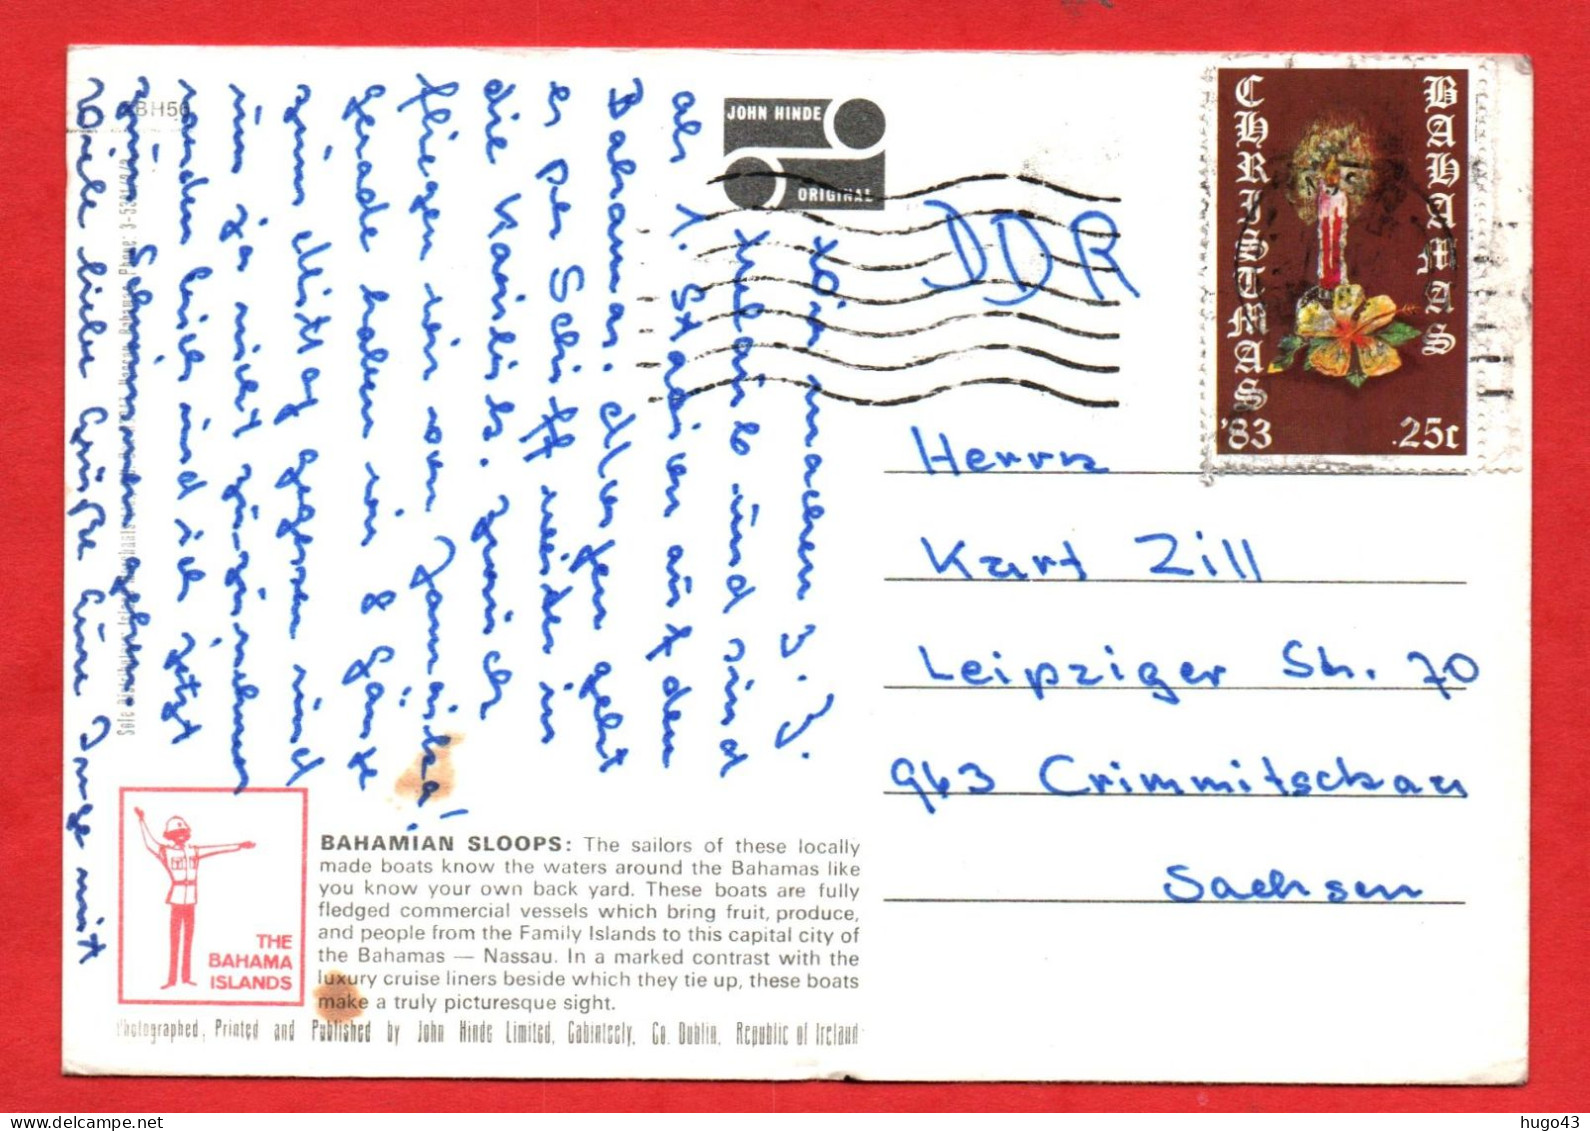 BH5
JOHN HINDE
ORIGINAL
CHRISTMAS '83
BAHAMAS
25c
DDR
Wir machen z. Z.
Urlaub und sind
als 1. Station auf den
Bahamas. Morgen geht
es per Schiff weiter in
die Karibik. Zurück
fliegen wir von Jamaika!
Gerade haben wir 8 Gänge
zum Mittag gegessen und
um ja nicht zuzunehmen
ruden lisch und ich jetzt
zum Schwimmen gehen.
Viele liebe Grüße Eure Inge mit
Herrn
Kurt Zill
Leipziger Str. 70
963 Crimmitschau
Sachsen
THE
BAHAMA
ISLANDS
BAHAMIAN SLOOPS: The sailors of these locally
made boats know the waters around the Bahamas like
you know your own back yard. These boats are fully
fledged commercial vessels which bring fruit, produce,
and people from the Family Islands to this capital city of
the Bahamas — Nassau. In a marked contrast with the
luxury cruise liners beside which they tie up, these boats
make a truly picturesque sight.
Photographed, Printed and Published by John Hinde Limited, Cabinteely, Co. Dublin, Republic of Ireland
hugo43
delcampe.net